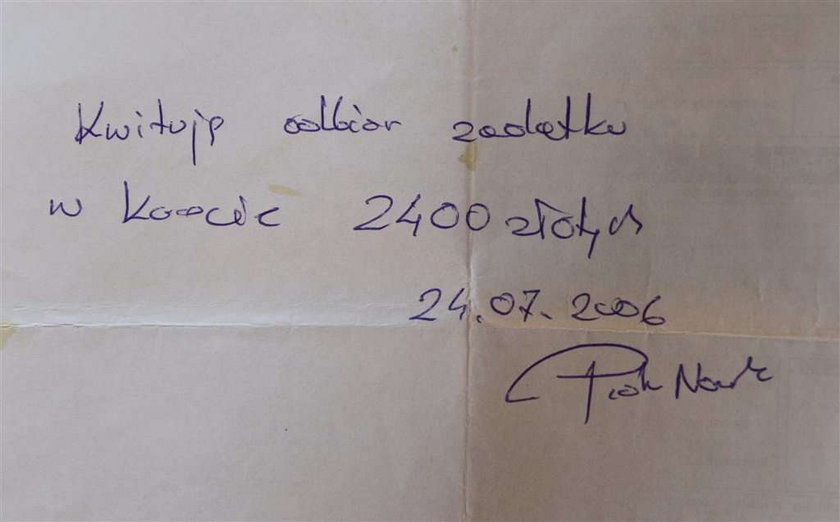 Kwituję odbiór zadatku
w kwocie 2400 złotych
24.07.2006
Piotr Nowak